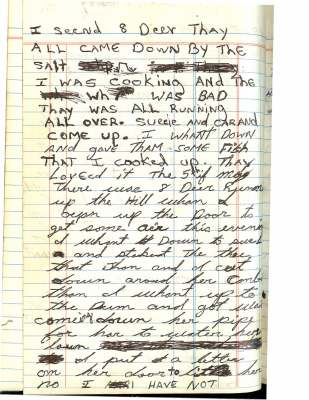 I seend 8 Deer Thay
ALL CAME DOWN BY THE
SAlt
I WAS COOKING AND THE
Wh WAS BAD
THAY WAS ALL RUNNING
ALL OVER. SUEEIE AND GARAND
COME UP. I WHANT DOWN
AND gAVE THAM SOME Fish
THAT I COOKED UP. Thay
Loveed it The 5 of May
There was 8 Deer Runing
up the Hill whan I
open up the Door to
get some air this evening
I whant Down to
and the they
that Than and I cout
down around her
than I whant up to
the Dam and got
down her pipe
for har to water her
lawn
I put a letter
on her door to her
no I HAVE NOT